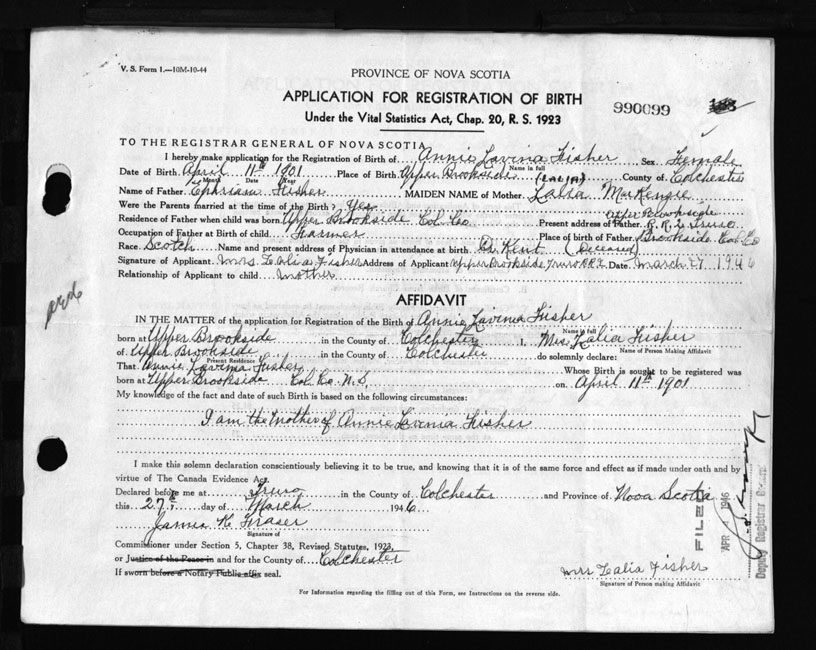 V. S. Form 1.—10M-10-44
PROVINCE OF NOVA SCOTIA
APPLICATION FOR REGISTRATION OF BIRTH
Under the Vital Statistics Act, Chap. 20, R. S. 1923
990099
TO THE REGISTRAR GENERAL OF NOVA SCOTIA
I hereby make application for the Registration of Birth of Annie Lavina Fisher Sex Female
Name in full
Date of Birth April 11th 1901 Place of Birth Upper Brookside County of Colchester
Month Day Year
Name of Father Ephriam Fisher MAIDEN NAME of Mother Zalia (ZALIA) MacKenzie
Were the Parents married at the time of the Birth? Yes Upper Brookside
Residence of Father when child was born Upper Brookside Col. Co. Present address of Father R.R.2 Truro
Occupation of Father at Birth of child Farmer Place of birth of Father Brookside Col. Co
Race Scotch Name and present address of Physician in attendance at birth Dr. Kent (Deceased)
Signature of Applicant Mrs Zalia Fisher Address of Applicant Upper Brookside Truro RR2 Date March 27 1946
Relationship of Applicant to child Mother
AFFIDAVIT
IN THE MATTER of the application for Registration of the Birth of Annie Lavinia Fisher
Name in full
born at Upper Brookside in the County of Colchester I, Mrs. Zalia Fisher
Name of Person Making Affidavit
of Upper Brookside in the County of Colchester do solemnly declare:
Present Residence
That Annie Lavinia Fisher Whose Birth is sought to be registered was
born at Upper Brookside Col. Co. N.S. on April 11th 1901
My knowledge of the fact and date of such Birth is based on the following circumstances:
I am the Mother of Annie Lavinia Fisher
I make this solemn declaration conscientiously believing it to be true, and knowing that it is of the same force and effect as if made under oath and by
virtue of The Canada Evidence Act.
Declared before me at Truro in the County of Colchester and Province of Nova Scotia
this 27th day of March 1946
James K. Fraser
Signature of
Commissioner under Section 5, Chapter 38, Revised Statutes, 1923.
or Justice of the Peace in and for the County of Colchester
If sworn before a Notary Public affix seal.
Mrs Zalia Fisher
Signature of Person making Affidavit
For Information regarding the filling out of this Form, see Instructions on the reverse side.
FILED
APR 4 1946
Deputy Registrar General